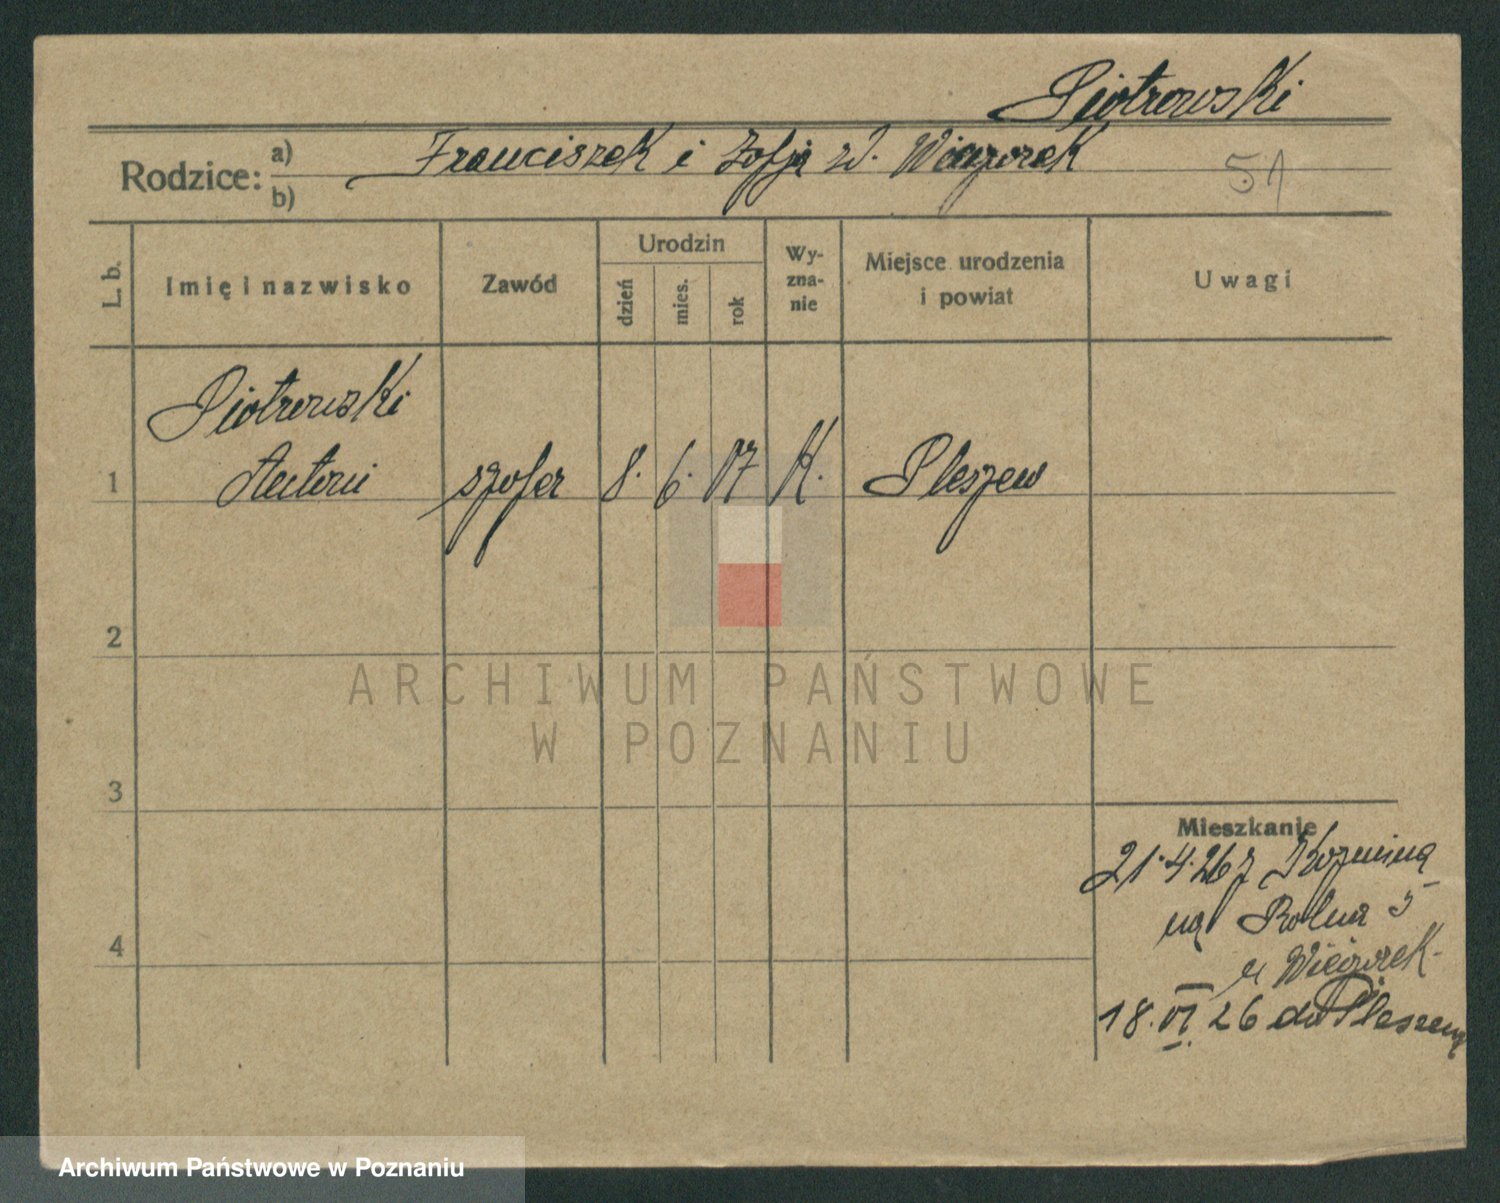 Piotrowski
Rodzice: a) Franciszek i Zofja zd. Wieczorek
b)
51
L. b. Imię i nazwisko Zawód Urodzin dzień mies. rok Wyznanie Miejsce urodzenia i powiat Uwagi
Piotrowski
1 Antoni szofer 8. 6. 07 K. Pleszew
2
3
4
Mieszkanie
21.4.26 z Koźmina
na Rolna 5
u Wieczorek
18.VI.26 do Pleszewa
ARCHIWUM PAŃSTWOWE
W POZNANIU
Archiwum Państwowe w Poznaniu